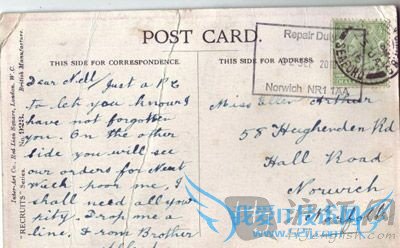 POST CARD.
THIS SIDE FOR CORRESPONDENCE.
THIS SIDE FOR ADDRESS.
Inter-Art Co., Red Lion Square, London, W.C.
British Manufacture.
"RECRUITS" Series.
Dear Nell / Just a P.C.
to let you know I
have not forgotten
you. On the other
side you will see
our orders for Next
Week poor me, I
shall need all your
pity. Drop me a
line, from Brother
Repair Duty
SEP 201
Norwich NR1 1AA
SEAFORD
Miss Ellen Arthur
58 Hughenden Rd
Hall Road
Norwich